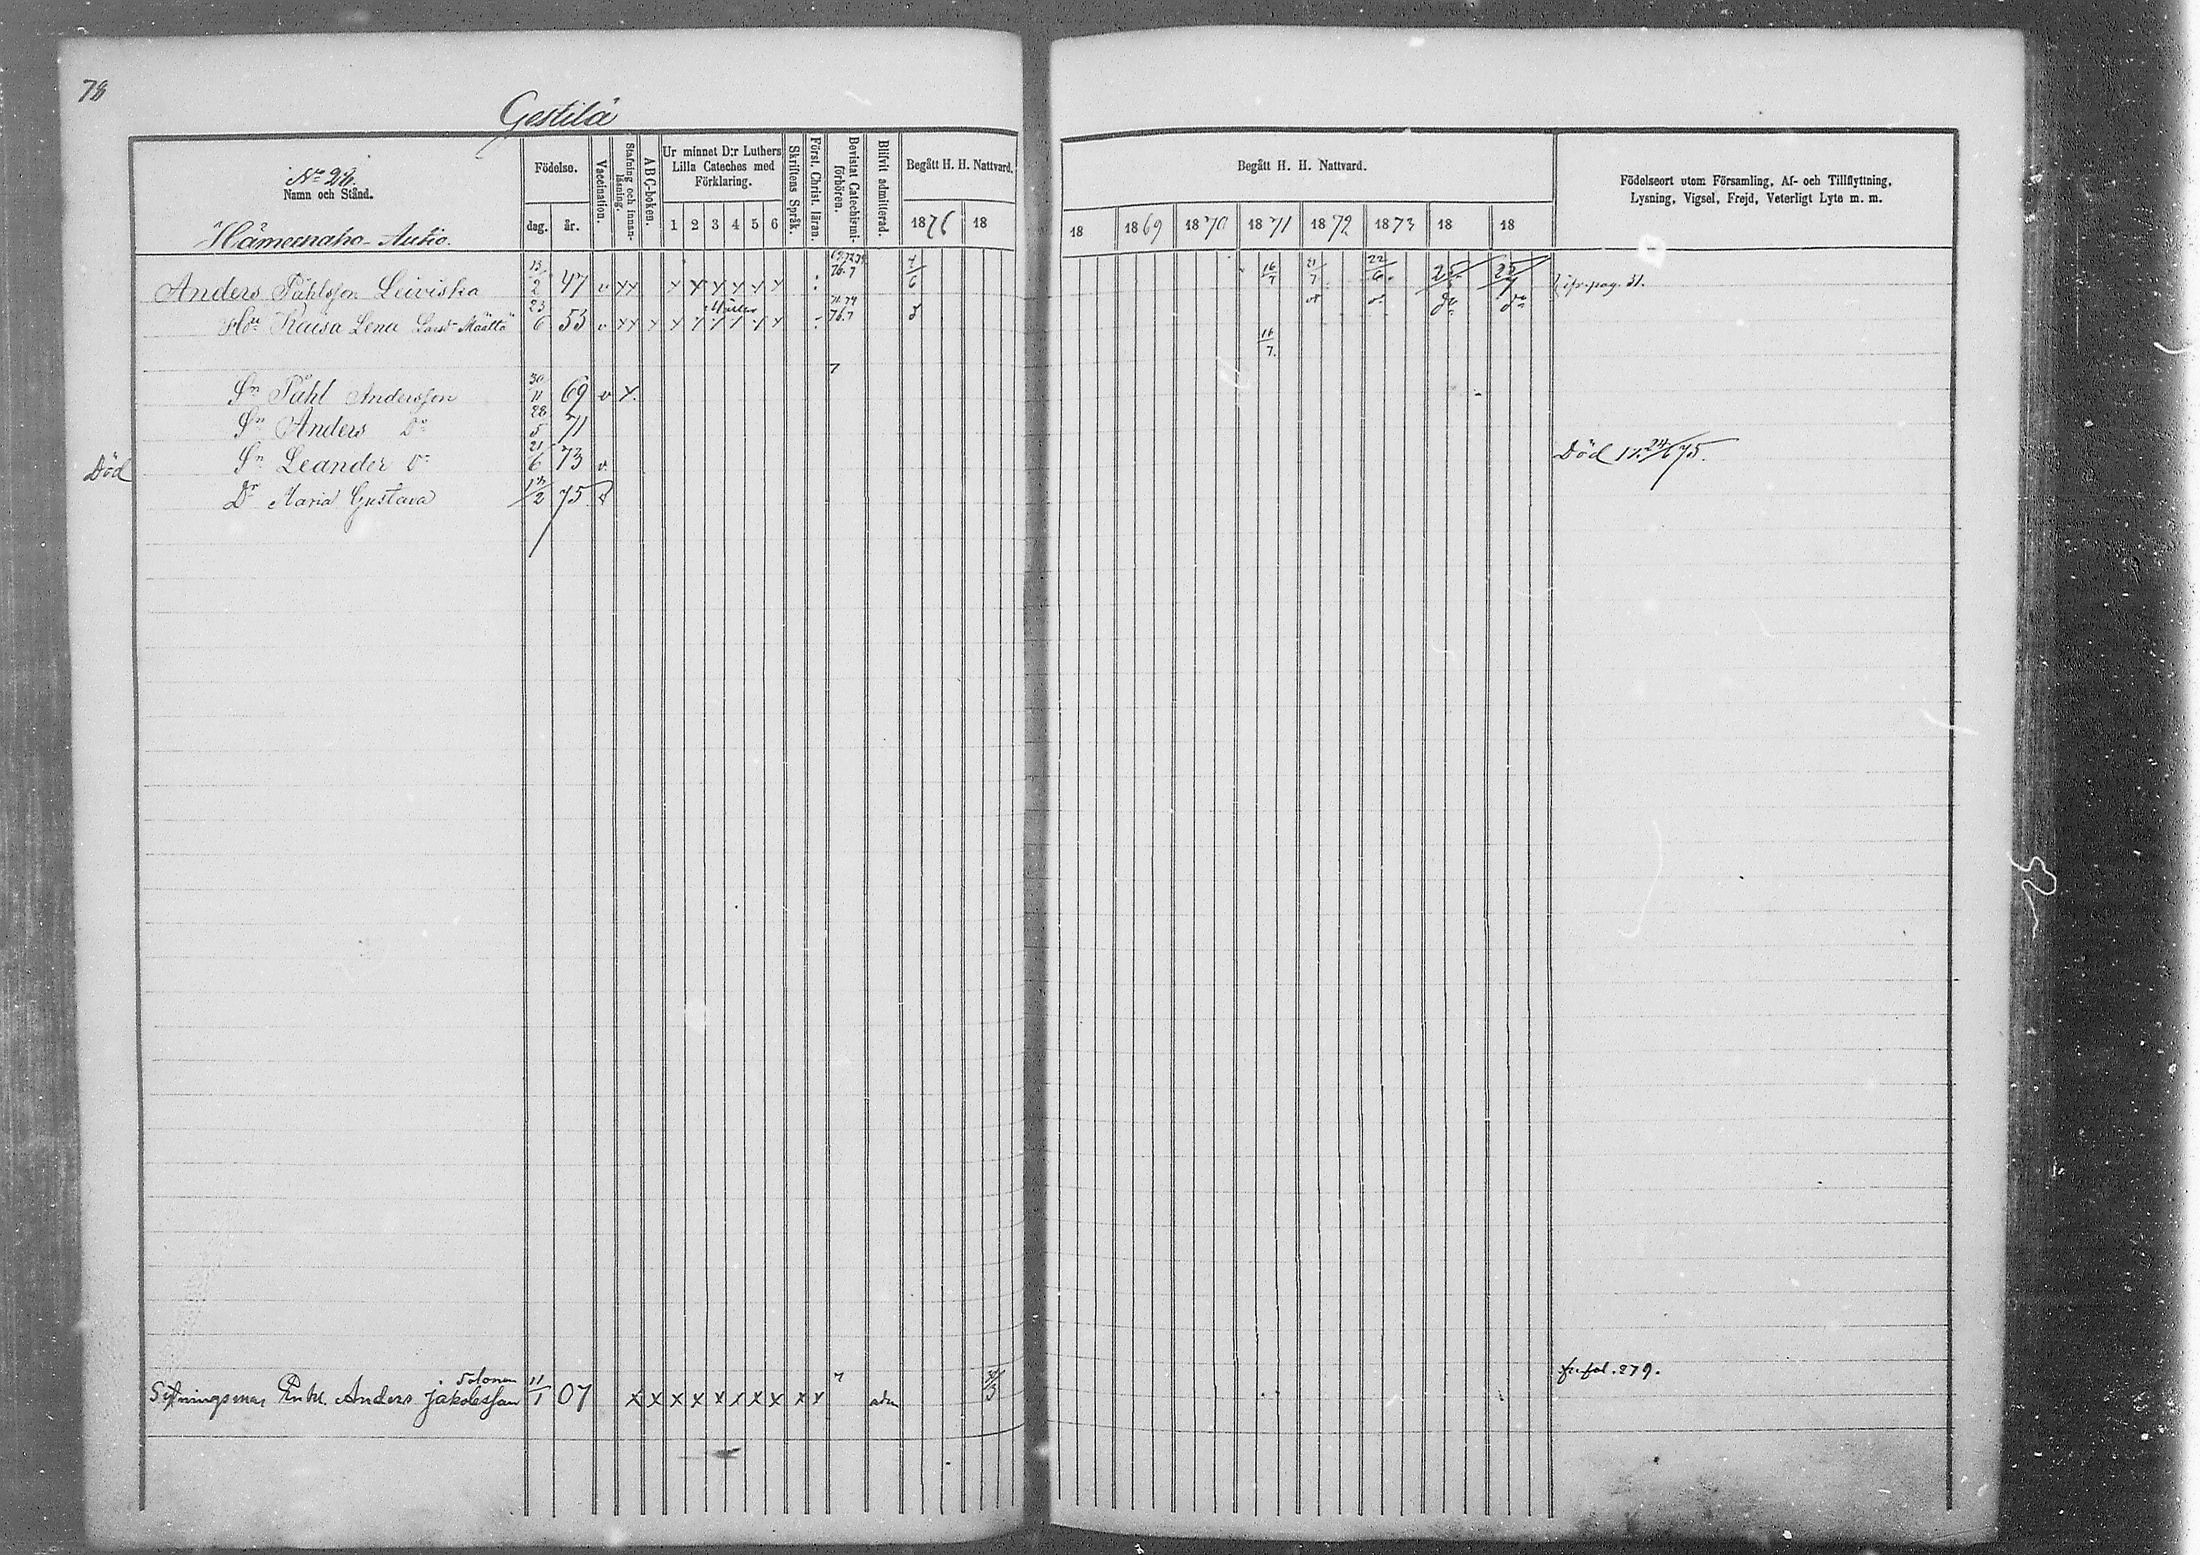 78
Gestilä
Nº 26.
Namn och Stånd.
Hämeenaho-Autio.
Födelse.
dag. år.
Vaccination.
Stafning och innanläsning.
ABC-boken.
Ur minnet D:r Luthers Lilla Cateches med Förklaring.
1 2 3 4 5 6
Skriftens Språk.
Först. Christ. läran.
Bevistat Catechismiförhören.
Blifvit admitterad.
Begått H. H. Nattvard.
1876 18
Begått H. H. Nattvard.
18 1869 1870 1871 1872 1873 18 18
Födelseort utom Församling, Af- och Tillflyttning,
Lysning, Vigsel, Frejd, Veterligt Lyte m. m.
Anders Påhlsson Leiviskä 13/2 47 v x x x x x x x x 76.7 4/6 16/7 21/7 22/6 25/ 25/ pag. 31.
Hu Kaisa Lena Larsd. Määttä 23/6 53 v x x x x x x x x x 76.7 do do
16/7.
Sn Påhl Andersson 30/11 69 v x.
Sn Anders Do 28/5 71
Död Sn Leander Do 21/6 73 v. Död 24/6 75.
Dr Maria Gustava 13/2 75 v
Solonen
Enkl. Anders Jakobsson 11/1 07 x x x x x x x x x x adm fr. fol. 279.